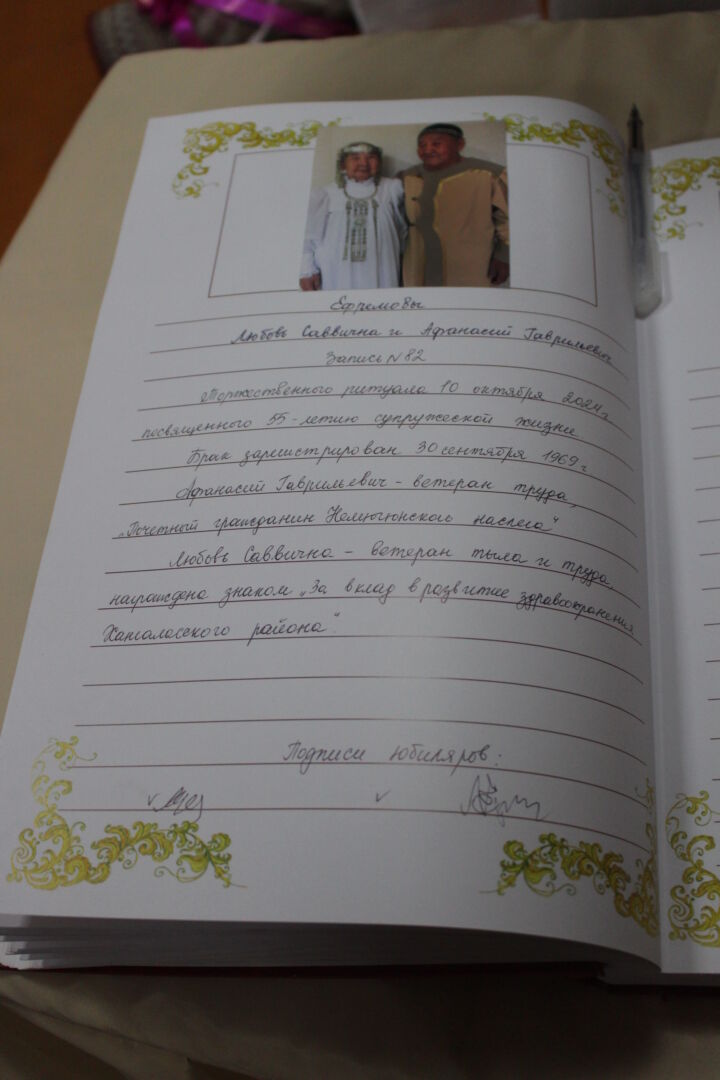 Ефремовы
Любовь Саввична и Афанасий Гаврильевич
Запись N 82
Торжественного ритуала 10 октября 2024 г.
посвященного 55-летию супружеской жизни
Брак зарегистрирован 30 сентября 1969 г.
Афанасий Гаврильевич - ветеран труда,
„Почетный гражданин Немюгюнского наслега“
Любовь Саввична - ветеран тыла и труда,
награждена знаком „За вклад в развитие здравоохранения
Хангаласского района“.
Подписи юбиляров: